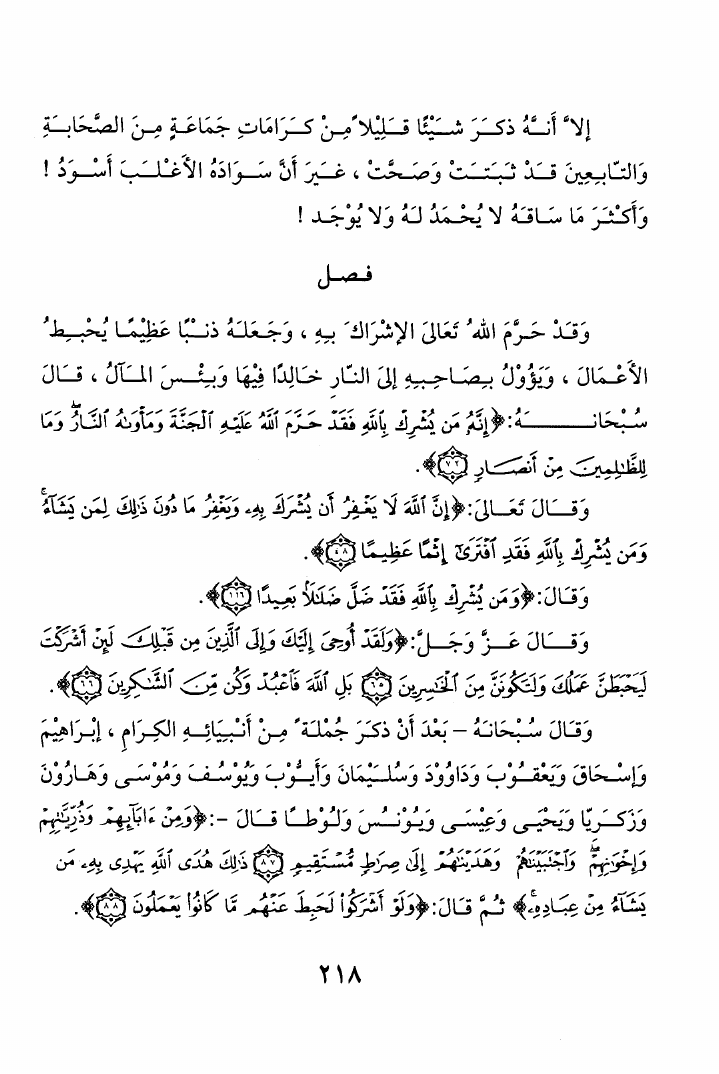 إلاَّ أَنَّهُ ذَكَرَ شَيْئًا قَلِيْلاً مِنْ كَرَامَاتِ جَمَاعَةٍ مِنَ الصَّحَابَةِ
وَالتَّابِعِينَ قَدْ ثَبَتَتْ وَصَحَّتْ ، غَيَرَ أَنَّ سَوَادَهُ الأَغْلَبَ أَسْوَدُ !
وَأَكْثَرَ مَا سَاقَهُ لا يُحْمَدُ لَهُ وَلا يُوْجَد !
فصل
وَقَدْ حَرَّمَ اللهُ تَعَالَى الإِشْرَاكَ بِهِ ، وَجَعَلَهُ ذَنْبًا عَظِيْمًا يُحْبِطُ
الأَعْمَالَ ، وَيَؤُوْلُ بِصَاحِبِهِ إِلَى النَّارِ خَالِدًا فِيْهَا وَبِئْسَ المَآلُ ، قَالَ
سُبْحَانَهُ: ﴿إِنَّهُۥ مَن يُشْرِكْ بِٱللَّهِ فَقَدْ حَرَّمَ ٱللَّهُ عَلَيْهِ ٱلْجَنَّةَ وَمَأْوَىٰهُ ٱلنَّارُ ۖ وَمَا
لِلظَّٰلِمِينَ مِنْ أَنصَارٍ ٧٢﴾.
وَقَالَ تَعَالَى: ﴿إِنَّ ٱللَّهَ لَا يَغْفِرُ أَن يُشْرَكَ بِهِۦ وَيَغْفِرُ مَا دُونَ ذَٰلِكَ لِمَن يَشَآءُ ۚ
وَمَن يُشْرِكْ بِٱللَّهِ فَقَدِ ٱفْتَرَىٰٓ إِثْمًا عَظِيمًا ٤٨﴾.
وَقَالَ: ﴿وَمَن يُشْرِكْ بِٱللَّهِ فَقَدْ ضَلَّ ضَلَٰلًۢا بَعِيدًا ١١٦﴾.
وَقَالَ عَزَّ وَجَلَّ: ﴿وَلَقَدْ أُوحِيَ إِلَيْكَ وَإِلَى ٱلَّذِينَ مِن قَبْلِكَ لَئِنْ أَشْرَكْتَ
لَيَحْبَطَنَّ عَمَلُكَ وَلَتَكُونَنَّ مِنَ ٱلْخَٰسِرِينَ ٦٥ بَلِ ٱللَّهَ فَٱعْبُدْ وَكُن مِّنَ ٱلشَّٰكِرِينَ ٦٦﴾.
وَقَالَ سُبْحَانَهُ – بَعْدَ أَنْ ذَكَرَ جُمْلَةً مِنْ أَنْبِيَائِهِ الكِرَامِ ، إِبْرَاهِيْمَ
وَإِسْحَاقَ وَيَعْقُوْبَ وَدَاوُوْدَ وَسُلَيْمَانَ وَأَيُّوْبَ وَيُوْسُفَ وَمُوْسَى وَهَارُوْنَ
وَزَكَرِيَّا وَيَحْيَى وَعِيْسَى وَيُوْنُسَ وَلُوْطًا قَالَ -: ﴿وَمِنْ ءَابَآئِهِمْ وَذُرِّيَّٰتِهِمْ
وَإِخْوَٰنِهِمْ ۖ وَٱجْتَبَيْنَٰهُمْ وَهَدَيْنَٰهُمْ إِلَىٰ صِرَٰطٍ مُّسْتَقِيمٍ ٨٧ ذَٰلِكَ هُدَى ٱللَّهِ يَهْدِى بِهِۦ مَن
يَشَآءُ مِنْ عِبَادِهِۦ ۚ﴾ ثُمَّ قَالَ: ﴿وَلَوْ أَشْرَكُوا۟ لَحَبِطَ عَنْهُم مَّا كَانُوا۟ يَعْمَلُونَ ٨٨﴾.
٢١٨